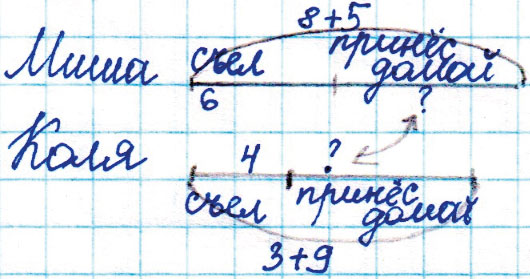 8+5
Миша съел принёс домой
6 ?
Коля 4 ?
съел принёс домой
3+9